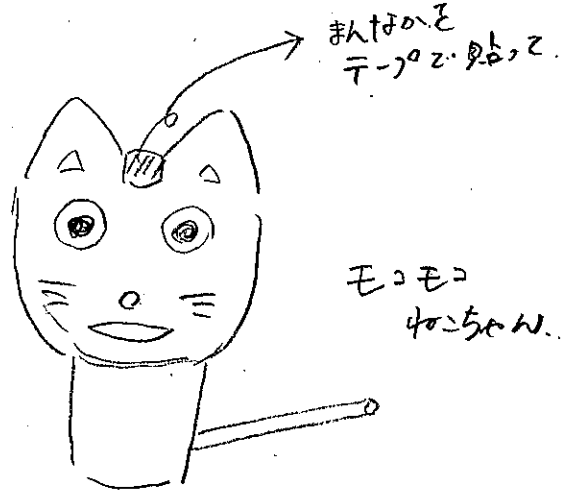 まんなかを
テープで貼って
モコモコ
ねこちゃん.